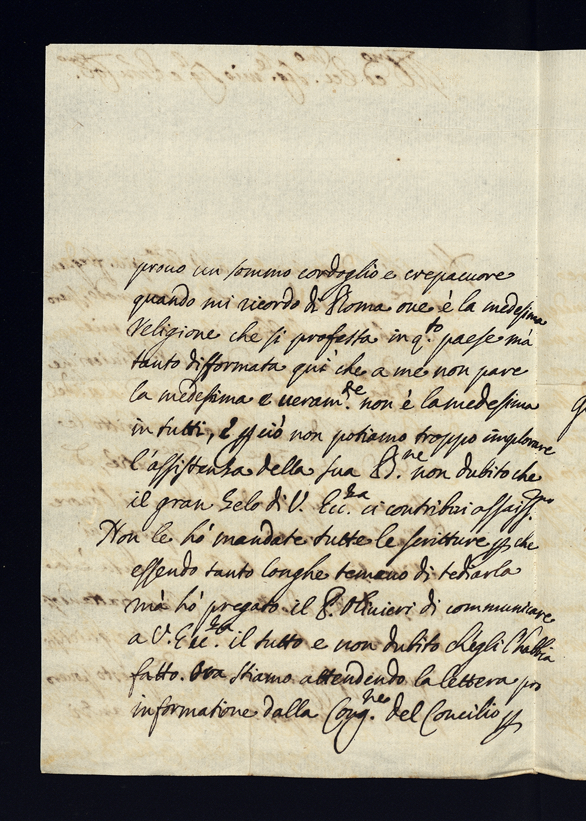 prouo un sommo cordoglio e crepacuore
quando mi ricordo di Roma oue è la medesima
Religione che si professa in q.to paese mà
tanto difformata qui che a me non pare
la medesima e ueram.te non è la medesima
in tutti, e p ciò non potiamo troppo implorare
l'assistenza della sua non dubito che
il gran zelo di V. Ecc.za ci contribui assaiss.mo
Non le hò mandate tutte le scritture p che
essendo tanto longhe temeuo di tediarla
mà hò pregato il P. Oliuieri di communicare
a V. Ecc.za il tutto e non dubito ch'egli l'habbia
fatto. Ora stiamo attendendo la lettera pro
informatione dalla Cong.ne del Concilio p